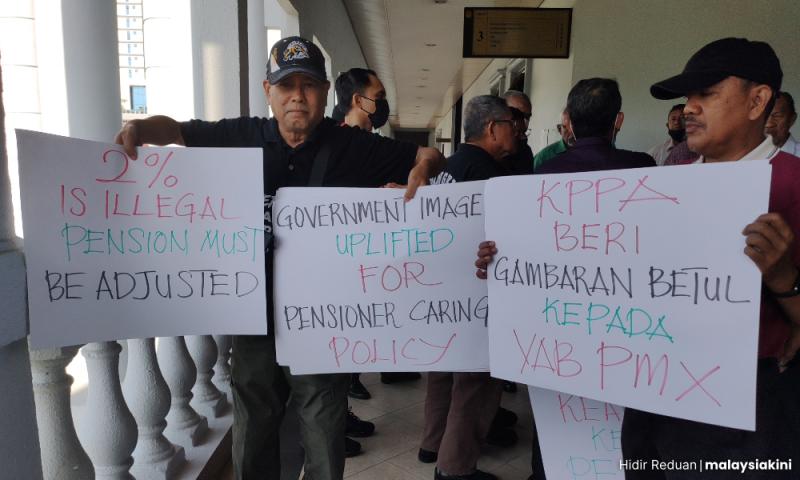 3
2%
IS ILLEGAL
PENSION MUST
BE ADJUSTED
GOVERNMENT IMAGE
UPLIFTED
FOR
PENSIONER CARING
POLICY
KPPA
BERI
GAMBARAN BETUL
KEPADA
YAB PMX
KE
Hidir Reduan | malaysiakini